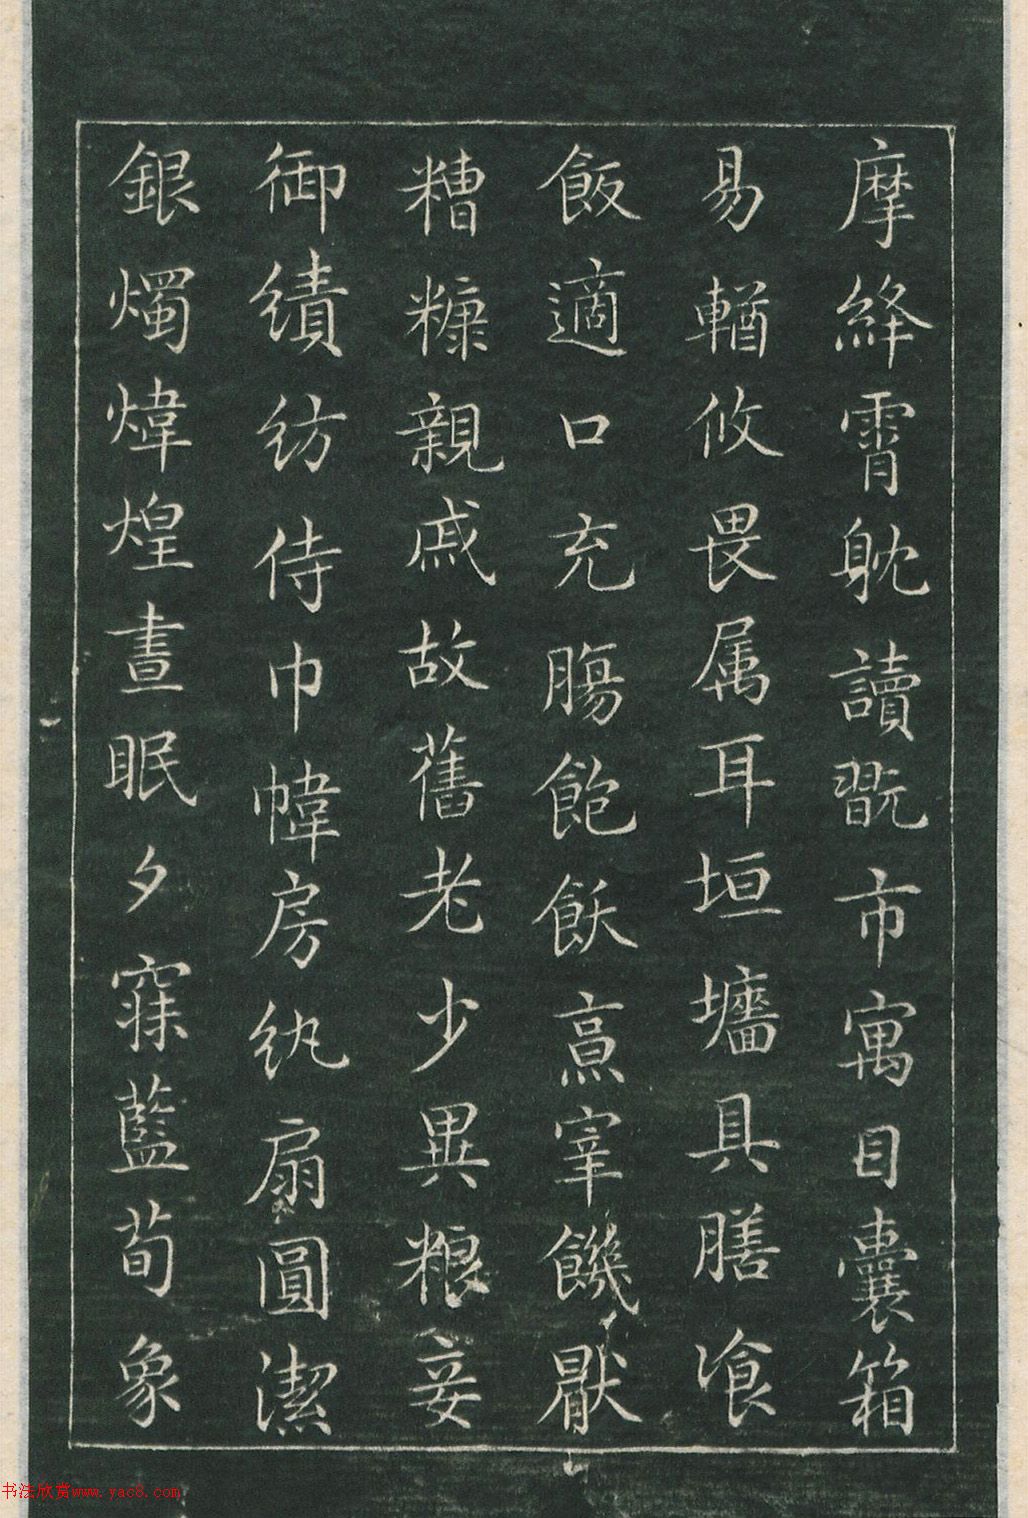 摩絳霄躭讀翫市寓目囊箱
易輶攸畏属耳垣墻具膳飡
飯適口充腸飽飫烹宰饑厭
糟糠親戚故舊老少異粮妾
御績紡侍巾幃房紈扇圓潔
銀燭煒煌晝眠夕寐藍荀象
书法欣赏www.yac8.com